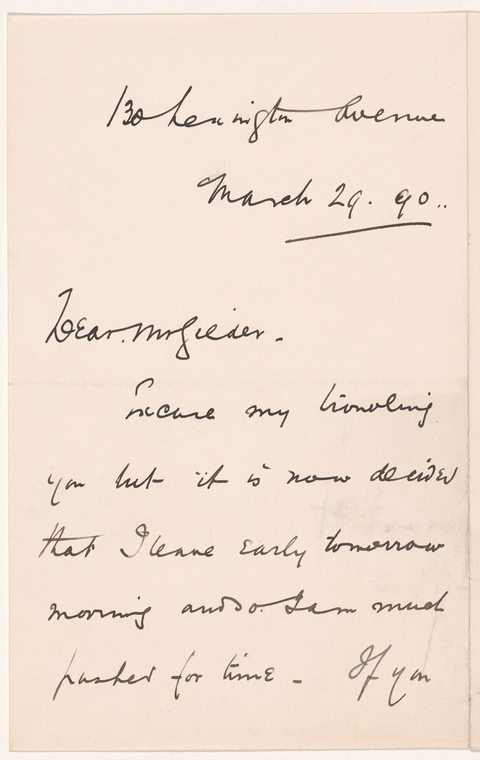 130 Lexington Avenue
March 29. 90..
Dear Mr Gilder.
Excuse my troubling
you but it is now decided
that I leave early tomorrow
morning and so I am much
pushed for time - If you